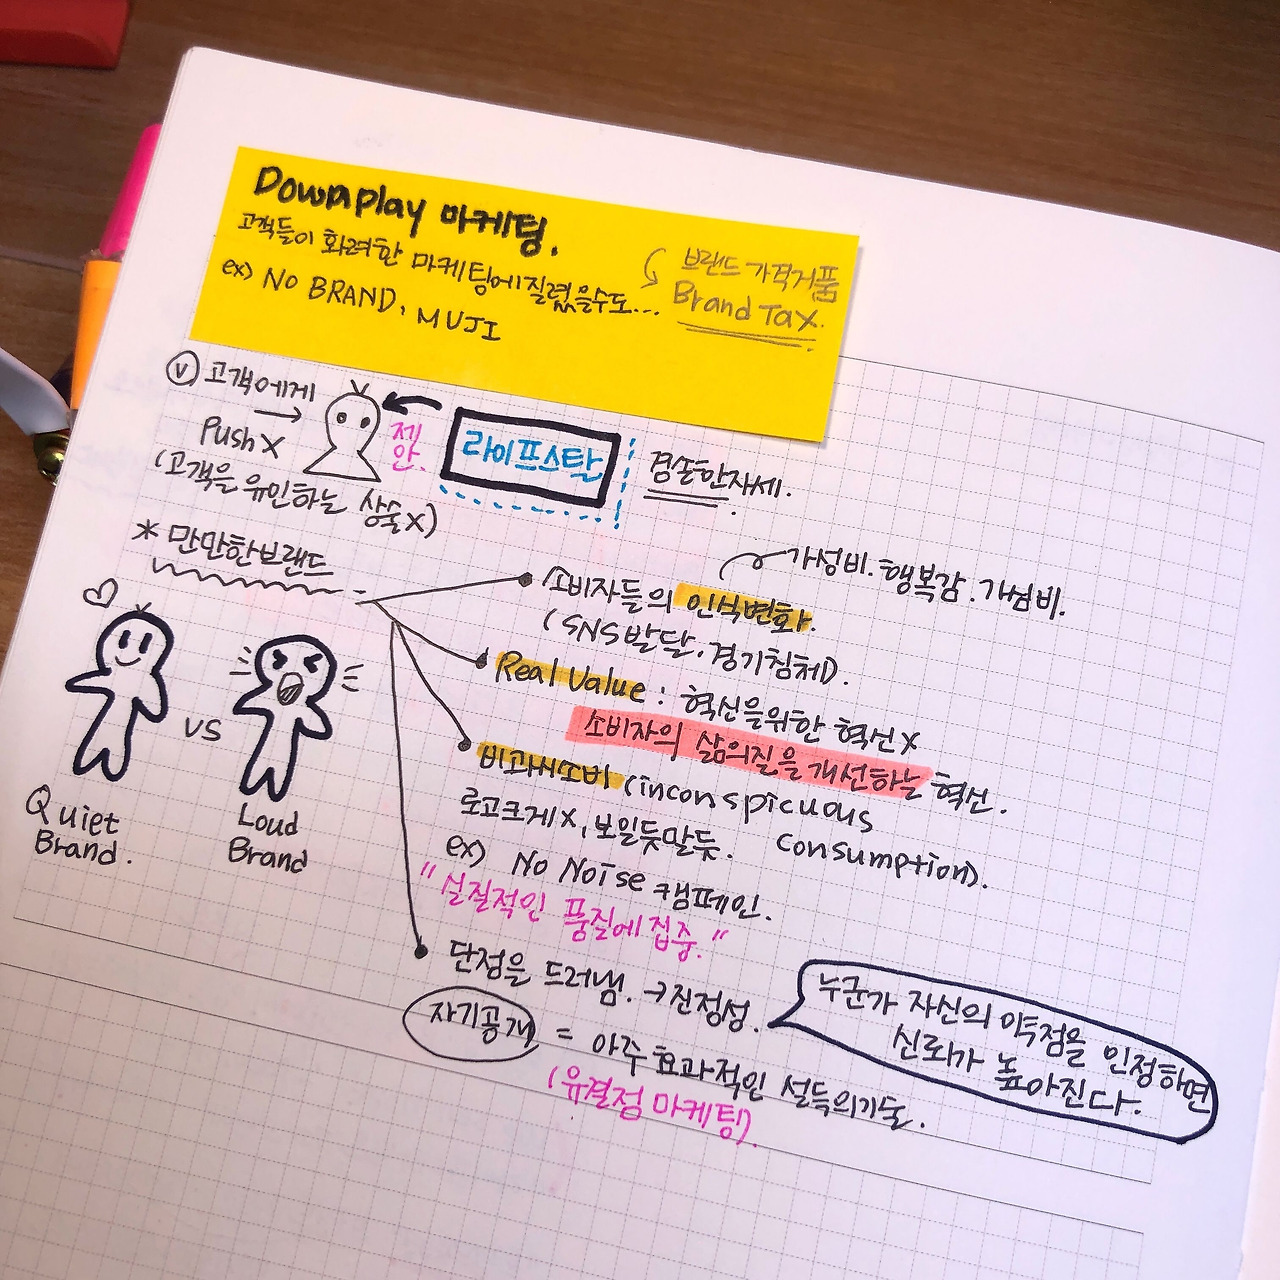 Downplay 마케팅.
고객들이 화려한 마케팅에 질렸을수도...
브랜드 가격거품
Brand Tax.
ex) NO BRAND, MUJI
ⓥ 고객에게
→
Push X
(고객을 유인하는 상술X)
제안.
라이프스탈
겸손한자세.
* 만만한브랜드
소비자들의 인식변화.
가성비. 행복감. 가심비.
(SNS발달. 경기침체).
Real Value : 혁신을위한 혁신X
소비자의 삶의질을 개선하는 혁신.
비과시소비 (inconspicuous
consumption).
로고크게X, 보일듯말듯.
ex) No Noise 캠페인.
"실질적인 품질에 집중."
VS
Quiet
Brand.
Loud
Brand
단점을 드러냄. →진정성.
누군가 자신의 약점을 인정하면
신뢰가 높아진다.
자기공개 = 아주 효과적인 설득의기술.
(유결점 마케팅).